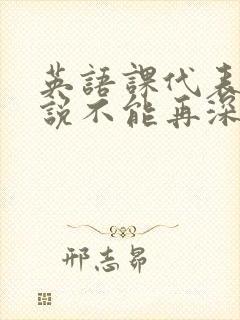 英語課代表
說不能再深
邢志昂